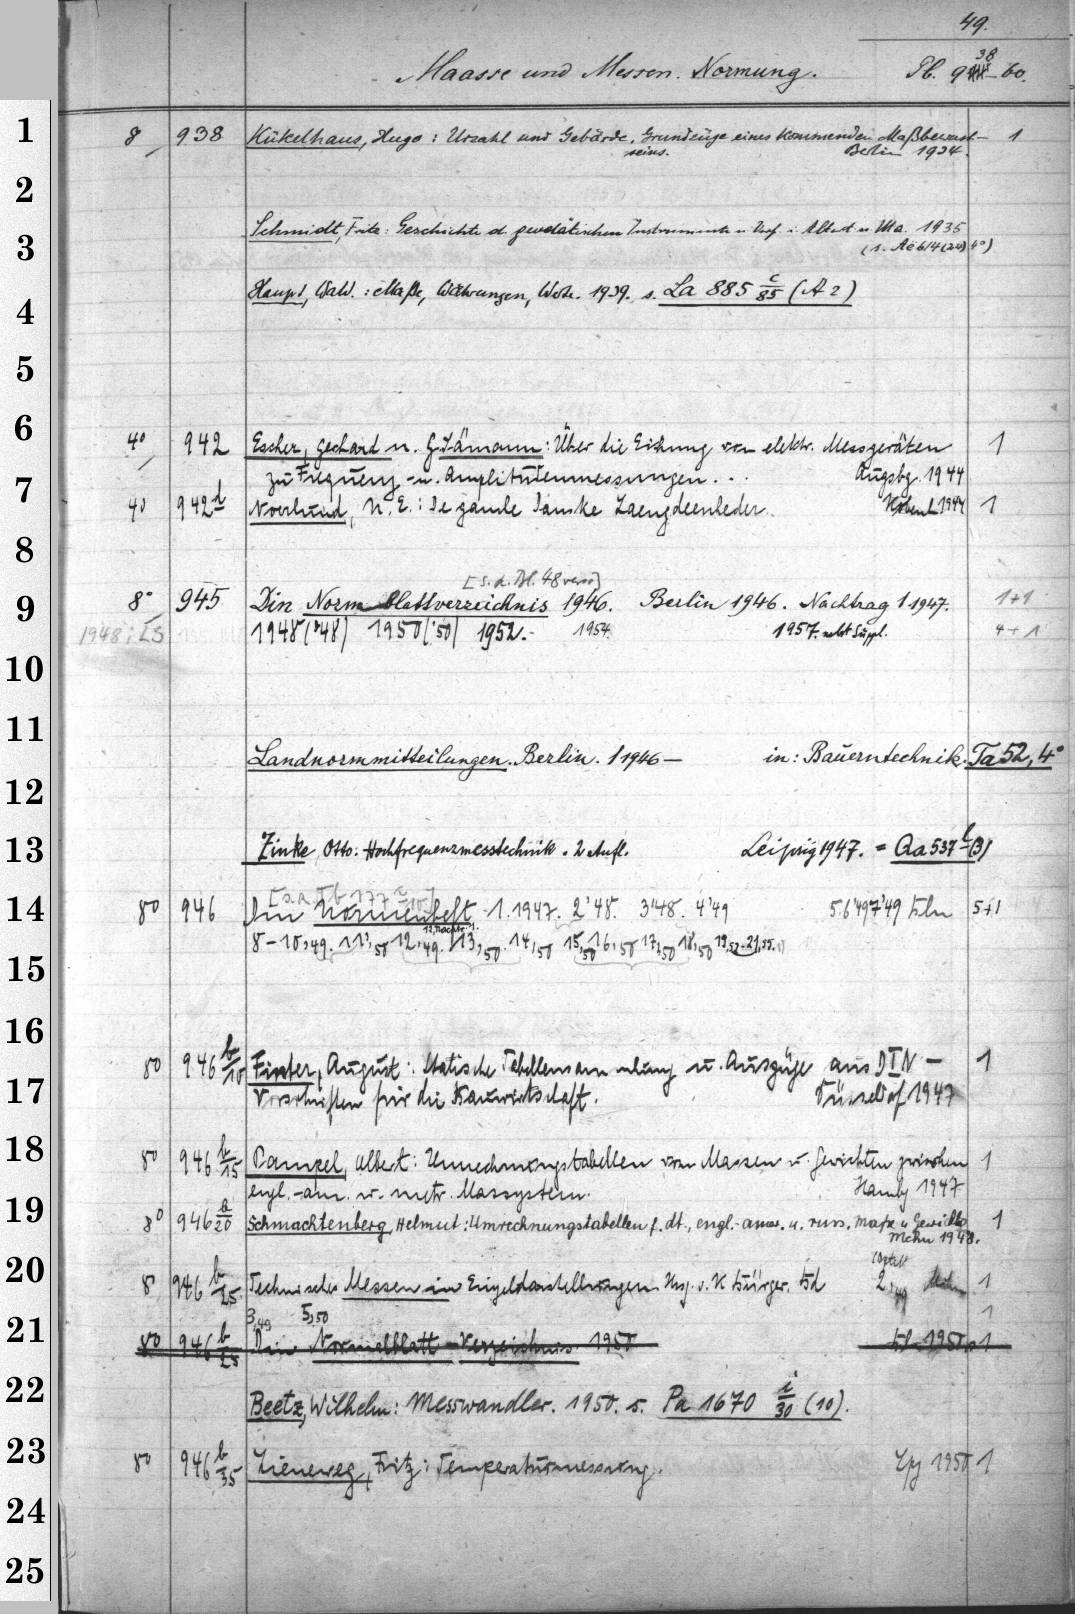 49.
Maasse und Messen. Normung. Pb. 938-60.
1
8 938 Kükelhaus, Hugo: Urzahl und Gebärde, Grundzüge eines kommenden Maßbewusst- 1
seins. Berlin 1934.
2
Schmidt, Fritz: Geschichte d. geodätischen Instrumente u. Verf. i. Altert. u. Ma. 1935
3
4°)
Haupt, Wald.: Maße, Währungen, Wbch. 1939. s. La 885 c/85 (A2)
4
5
6
4° 942 Escher, Gerhard u. G. Dämann: Über die Eichung von elektr. Messgeräten 1
zu Frequenz- u. Amplitudenmessungen... Augsbg. 1944
7
4° 942 d Noerlund, N. E.: De gamle Danske Laengdeenheder. 1944 1
8
[s. a. Bl. 48 verso]
9
8° 945 Din Normblattverzeichnis 1946. Berlin 1946. Nachtrag 1 1947. 1+1
1948: LS 1948 ('48) 1950 ('50) 1952.- 1954. 1957. nebst Suppl. 4+1
10
11
Landnormmitteilungen. Berlin. 1 1946 — in: Bauerntechnik. Ta 52, 4°
12
13
Zinke, Otto: Hochfrequenzmesstechnik. 2. Aufl. Leipzig 1947. = Qa 537 (3)
14
8° 946 Din Normenheft 1. 1947. 2'48. 3'48. 4'49 5. 6'49 7'49 Bln 5+1
8-10,49. 11,50 12,49. 13,50. 14,50 15,50 16,50 17,50 18,50 19,52.-21,55.
15
16
8° 946 b/10 Finter, August: Statische Tabellensammlung u. Auszüge aus DIN- 1
17
Vorschriften für die Bauwirtschaft. Düsseldof 1947
18
8° 946 b/15 Pampel, Albert: Umrechnungstabellen von Massen u. Gewichten zwischen 1
engl.-am. u. metr. Massystem. Hambg 1947
19
8° 946 a/20 Schmachtenberg, Helmut: Umrechnungstabellen f. dt., engl.-amer. u. russ. Maße u. Gewichte 1
Mchn 1948.
20
8 946 b/25 Technisches Messen in Einzeldarstellungen. Hrsg. v. K. Bürger. Bd 2,49 1
3,49 5,50 1
21
8° 946 b/25 Din Normalblatt-Verzeichnis 1950 Bl. 1950 1
22
Beetz, Wilhelm: Messwandler. 1950. s. Pa 1670 i/30 (10).
23
8° 946 b/35 Lieneweg, Fritz: Temperaturmessung. Lpz 1950 1
24
25